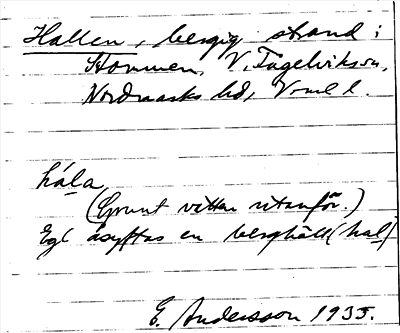 Hallen, bergig strand i
Stommen, V. Fågelviks sn,
Nordmarks hd, Vrml l.
hála
(Grunt vatten utanför.)
Egl åsyftas en berghäll (hal)
E. Andersson 1935.